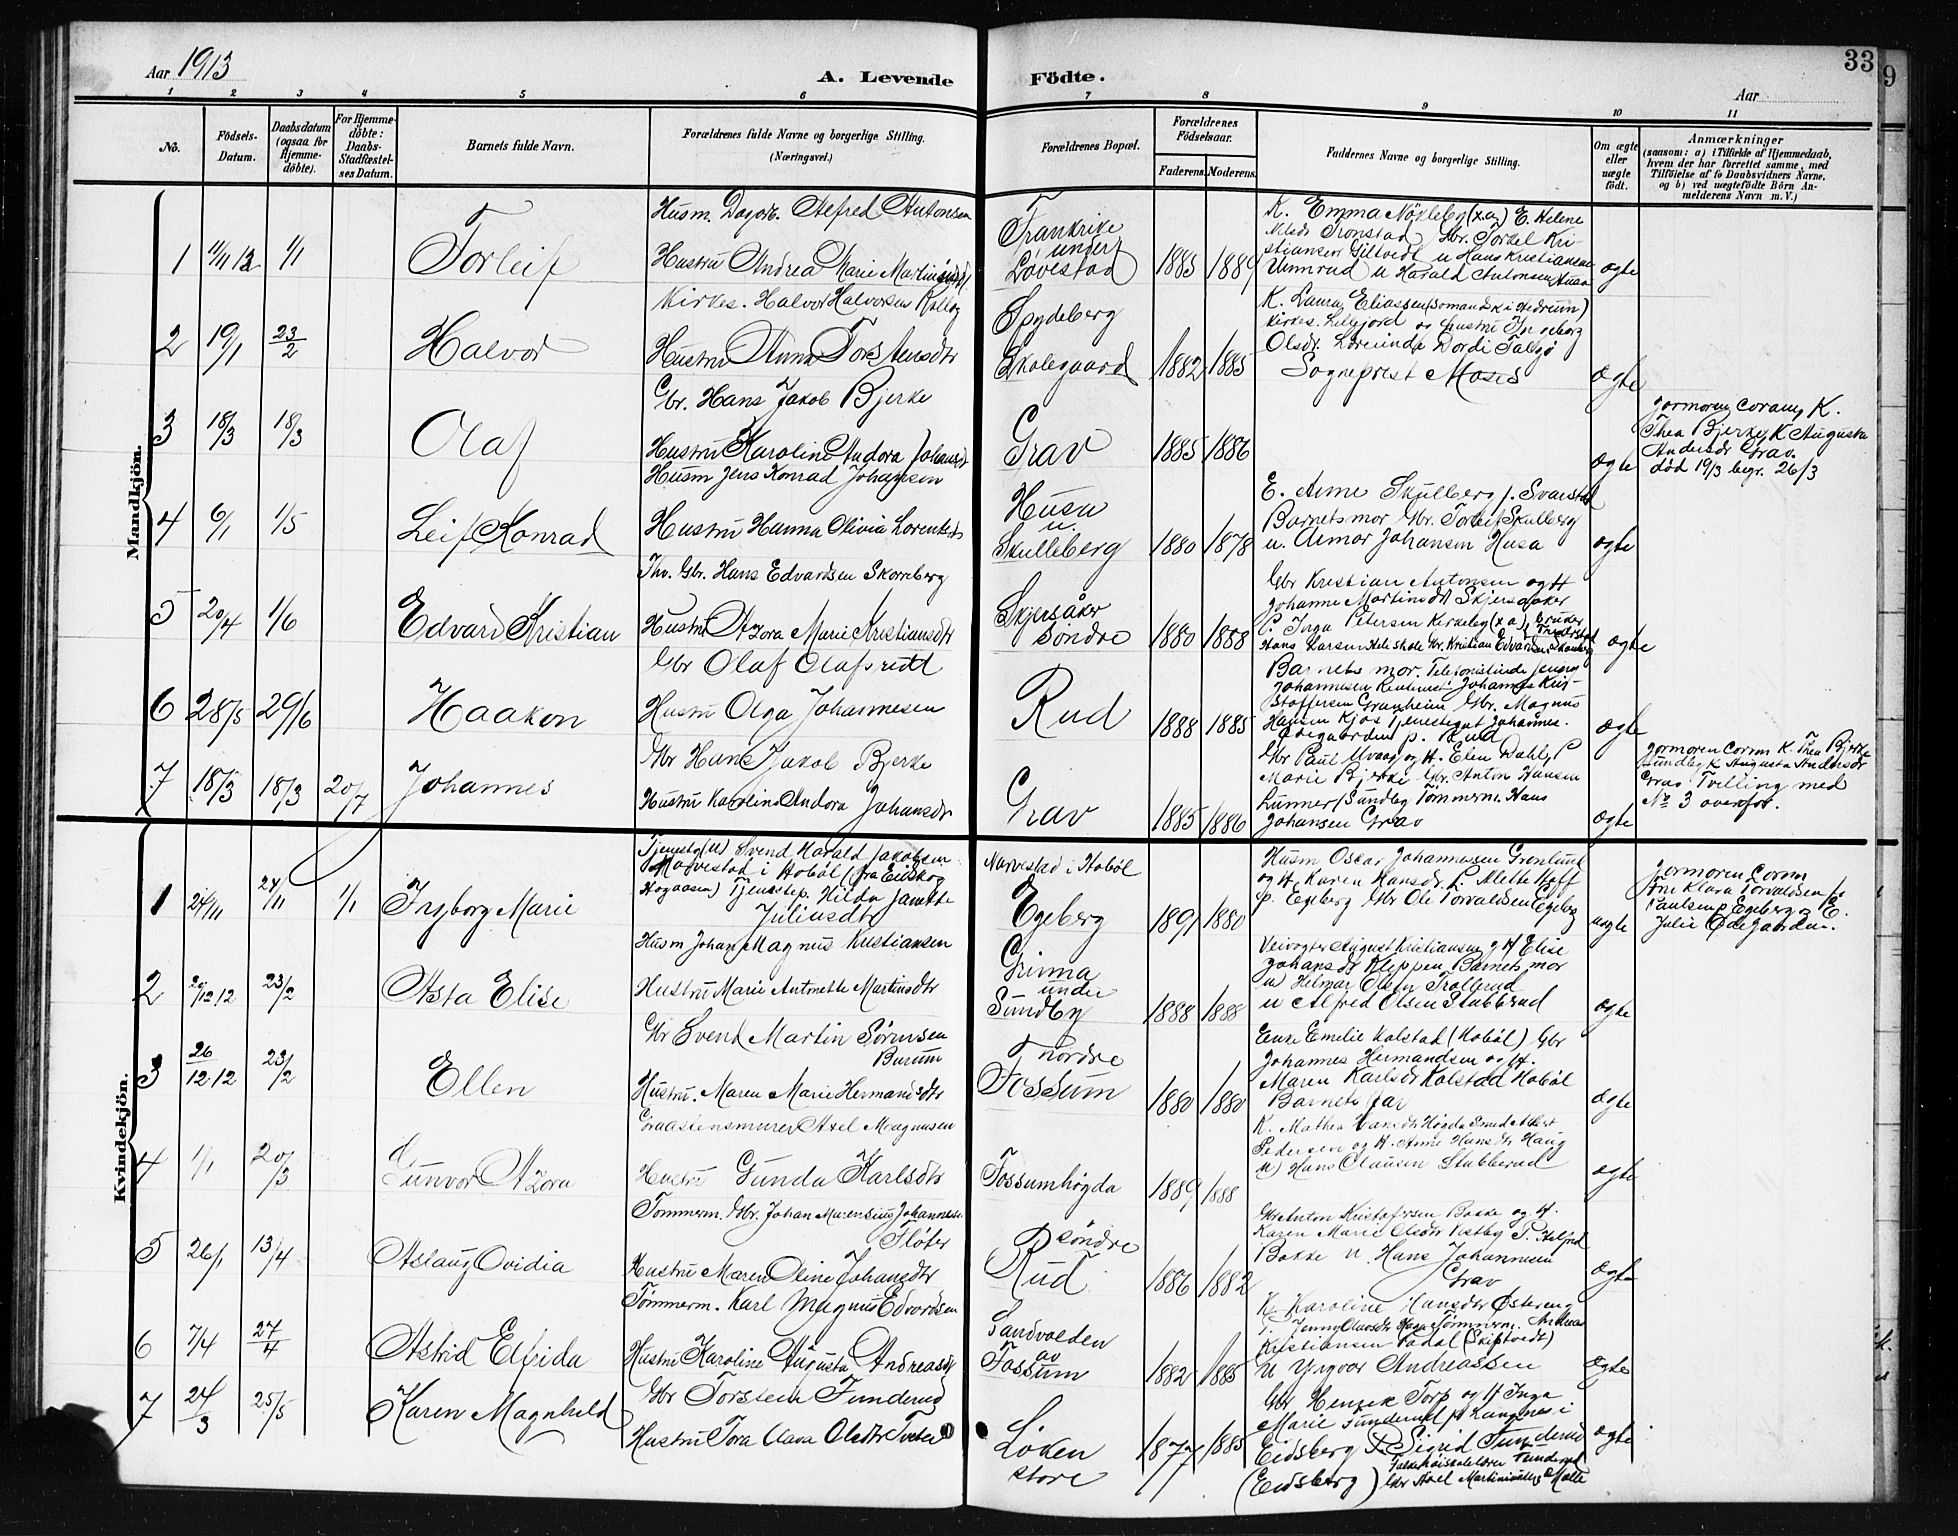 Aar 1913
A. Levende Födte.
33
9
Aar
1 2 3 4 5 6 7 8 9 10 11
No.
Födsels-Datum.
Daabsdatum (ogsaa for Hjemmedöbte).
For Hjemmedöbte: Daabs-Stadfæstelses Datum.
Barnets fulde Navn.
Forældrenes fulde Navne og borgerlige Stilling.
(Næringsvei.)
Forældrenes Bopæl.
Forældrenes Födselsaar.
Faderens. Moderens.
Faddernes Navne og borgerlige Stilling.
Om ægte eller uægte födt.
Anmærkninger
(saasom: a) i Tilfælde af Hjemmedaab, hvem der har forrettet samme, med Tilföielse af to Daabsvidners Navne, og b) ved uægtefödte Börn Anmelderens Navn m. V.)
Mandkjön.
1 11/11 12 1/1 Torleif
Husm. Dagarb. Alfred Antonsen
Hustru Andrea Marie Martinsdtr.
Frankrike
under
Lövestad
1885 1889
K. Emma Nökleby (x.a.) E. Helene
Tronstad Gbr. Torkel Kri-
stiansen Giltvedt u Hans Kristiansen
Unnrud u Harald Antonsen Husa
ægte
2 19/1 23/2 Halvor
Kirkes. Halvor Halvorsen
Hustru Anna Torstensdtr
Spydeberg
Skolegaard
1882 1885
K. Laura Eliassen
Kirkes. Lilejord og Hustru Ingeborg
Olsdr. Dordi
Sogneprest Moses
ægte
3 18/3 18/3 Olaf
Gbr. Hans Jakob Bjerke
Hustru Karoline Andora Johansdt
Grav
1885 1886
ægte
Jormoren Coram, K.
Thea Bjerke, K Augusta
Andersdr Grav.
död 19/3 begr. 26/3
4 6/1 1/5 Leif Konrad
Husm Jens Konrad Johansen
Hustru Hanna Olivia Lorentsdtr
Husa
u.
Skulleberg
1880 1878
E. Anne Skulberg p. Svarstad
Barnets mor Gbr. Torleif Skulberg
u. Johansen Husa
ægte
5 20/4 1/6 Edvard Kristian
Gbr. Hans Edvardsen Skorreberg
Hustru Azora Marie Kristiansdtr
Skjersåker
söndre
1880 1888
Gbr Kristian Antonsen og H
Johanne Martinsdt Skjersaaker
P. Inga Petersen Kirkeby (x a)
Hans Larsen Gbr. Kristian Edvardsen
ægte
6 28/5 29/6 Haakon
Gbr Olaf Olafsrudt
Hustru Olga Johannesen
Rud
1888 1885
Barnets mor. Telefonistinde Jenny
Johannesen Johannes Kris-
stoffersen Granheim Gbr. Magnus
Hansen Kjos Tjenestegut Johannes
Ödegaarden p. Rud
ægte
7 18/3 18/3 20/7 Johannes
Gbr Hans Jakob Bjerke
Hustru Karoline Andora Johansdtr
Grav
1885 1886
Gbr Paul og H. Elen Dahl, P
Marie Bjerke Gbr. Anton Hansen
Lunner, Sundby Tömmerm. Hans
Johansen Grav
ægte
Jormoren Coram K. Thea Bjerke
Sundby K Augusta Andersdr
Grav Tvilling med
No 3 ovenfor.
Kvindekjön.
1 24/11 24/11 1/1 Ingborg Marie
Tjenestg (U) Svend Harald Jakobsen
Narvestad i Hoböl (fra Eidskog
Hogaasen) Tjenestep. Hilda Janette
Juliusdtr
Narvestad i Hoböl
Egeberg
1891 1880
Husm Oscar Johannesen Grönlund
og H. Karen Hansdr. P. Mette Hoff
p. Egeberg Gbr Ole Torvaldsen Egeberg
uægte
Jormoren Coram
Klara Torvaldsen
Paulsen p Egeberg og E.
Julie Ödegaarden.
2 29/12 12 23/2 Asta Elise
Husm Johan Magnus Kristiansen
Hustru Marie Antonette Martinsdtr
Grinna
under
Sundby
1888 1888
Veivogter August Kristiansen og H Elise
Johansdr Kleppen Barnets mor
u Helmar Olsen Trollerud
u Alfred Olsen Stubberud
ægte
3 26/12 12 23/2 Ellen
Gbr Svend Martin Sörensen
Burum
Hustru. Maren Marie Hermansdtr
nordre
Fossum
1880 1880
Enke Emelie Kolstad (Hoböl) Gbr
Johannes Hermandsen og H.
Maren Karlsdr Kolstad Hoböl
Barnets far
ægte
4 1/1 20/3 Gunvor Azora
Graastensmurer Axel Magnusen
Hustru Gunda Karlsdtr
Fossumhögda
1889 1888
K. Mathea Högda
Pedersen og H. Anne Hansdtr Haug
u Hans Clausen Stubberud
ægte
5 26/1 13/4 Aslaug Ovidia
Tömmerm. Gbr. Johan Marensius Johannesen
Flöter
Hustru Maren Oline Johansdtr
söndre
Rud
1886 1882
Gbr Anton Kristofersen Bakke og H.
Karen Marie Olsdtr P.
Bakke u. Hans Johannesen
Grav
ægte
6 7/4 27/4 Astrid Elfrida
Tömmerm. Karl Magnus Edvardsen
Hustru Karoline Augusta Andreasdtr
Sandvolden
av
Fossum
1882 1885
K. Karoline Hansdtr Östereng
P. Jenny Olavsdtr Haga Tömmerm. Andreas
Kristiansen (Skiptvedt)
u Yngvar Andreassen
ægte
7 24/3 25/5 Karen Magnhild
Gbr Torstein Funderud
Hustru Tora Clara Olsdtr Tveter
Löken
store
1877 1885
Gbr Henrik Torp og H Inga
Marie Funderud p Langnes i
Eidsberg P. Sigrid Funderud
(Eidsberg) Folkehöiskolelærer Funderud
Gbr Axel
ægte